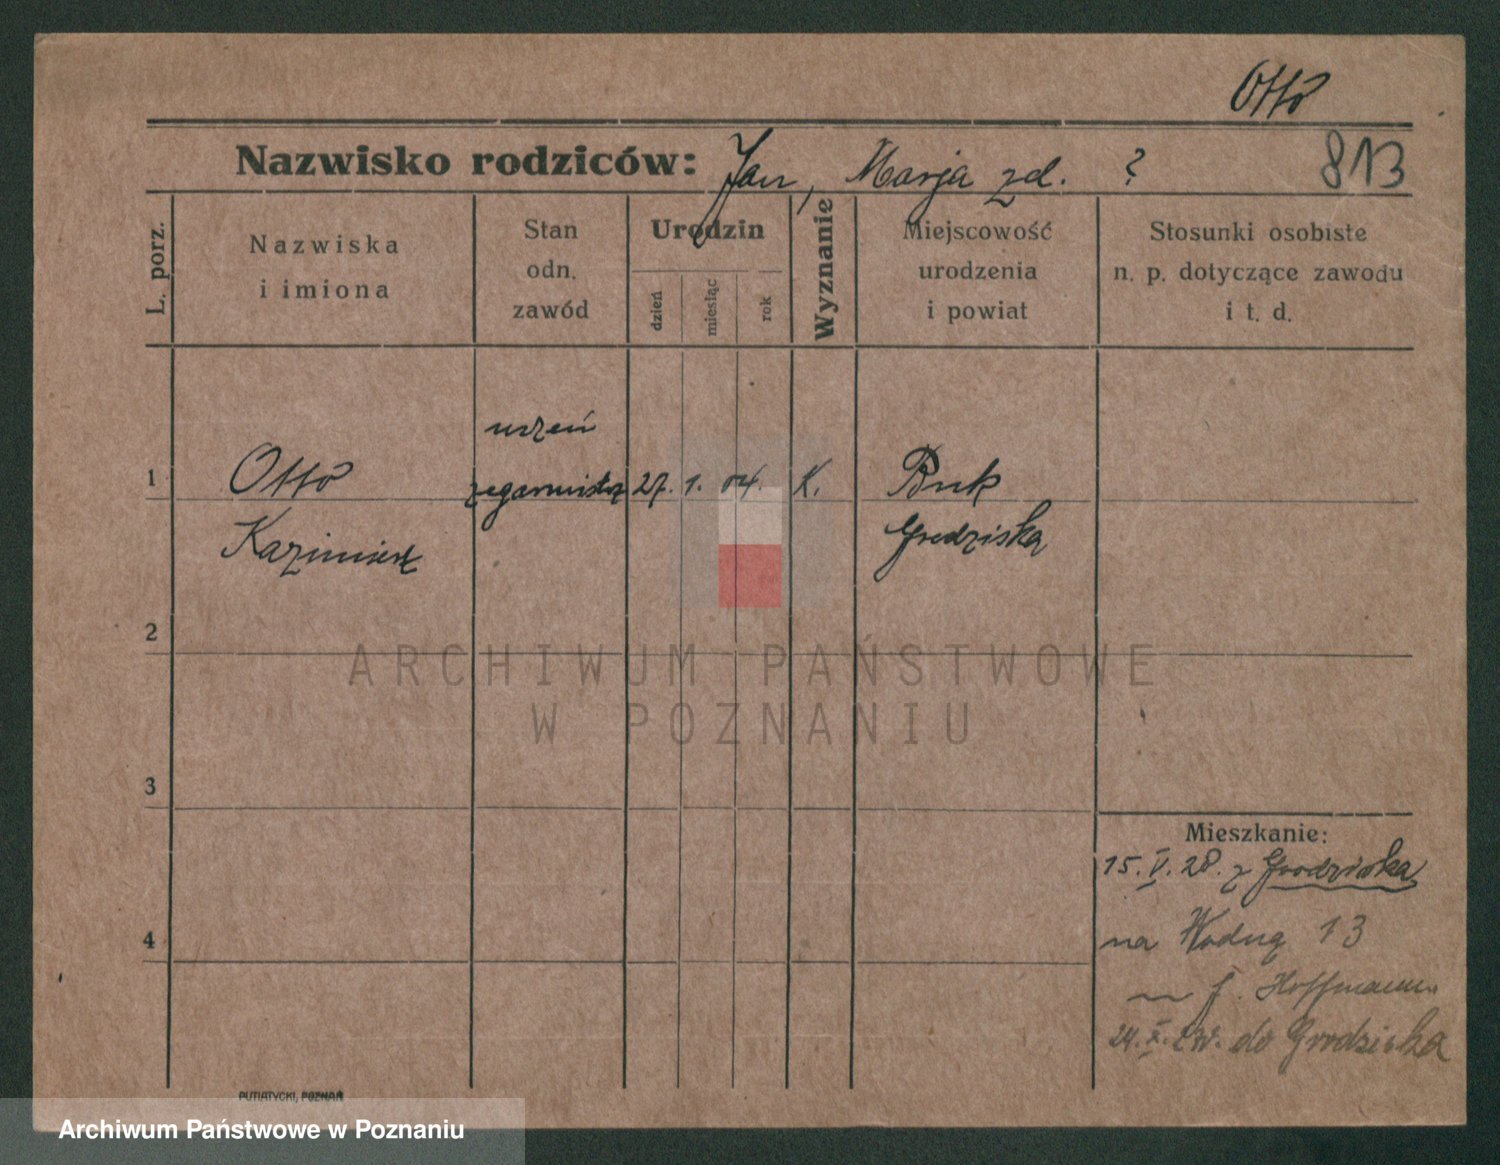 Otto
Nazwisko rodziców: Jan, Marja zd. ?
813
L. porz.
Nazwiska
i imiona
Stan
odn.
zawód
Urodzin
dzień
miesiąc
rok
Wyznanie
Miejscowość
urodzenia
i powiat
Stosunki osobiste
n. p. dotyczące zawodu
i t. d.
1
Otto
Kazimierz
uczeń
zegarmistrz
27. 1. 04. K.
Buk
Grodziska
2
3
4
Mieszkanie:
15. V. 28. z Grodziska
na Wodną 13
f. Hoffmann
24. X. do Grodziska
PUTIATYCKI, POZNAŃ
ARCHIWUM PAŃSTWOWE
W POZNANIU
Archiwum Państwowe w Poznaniu